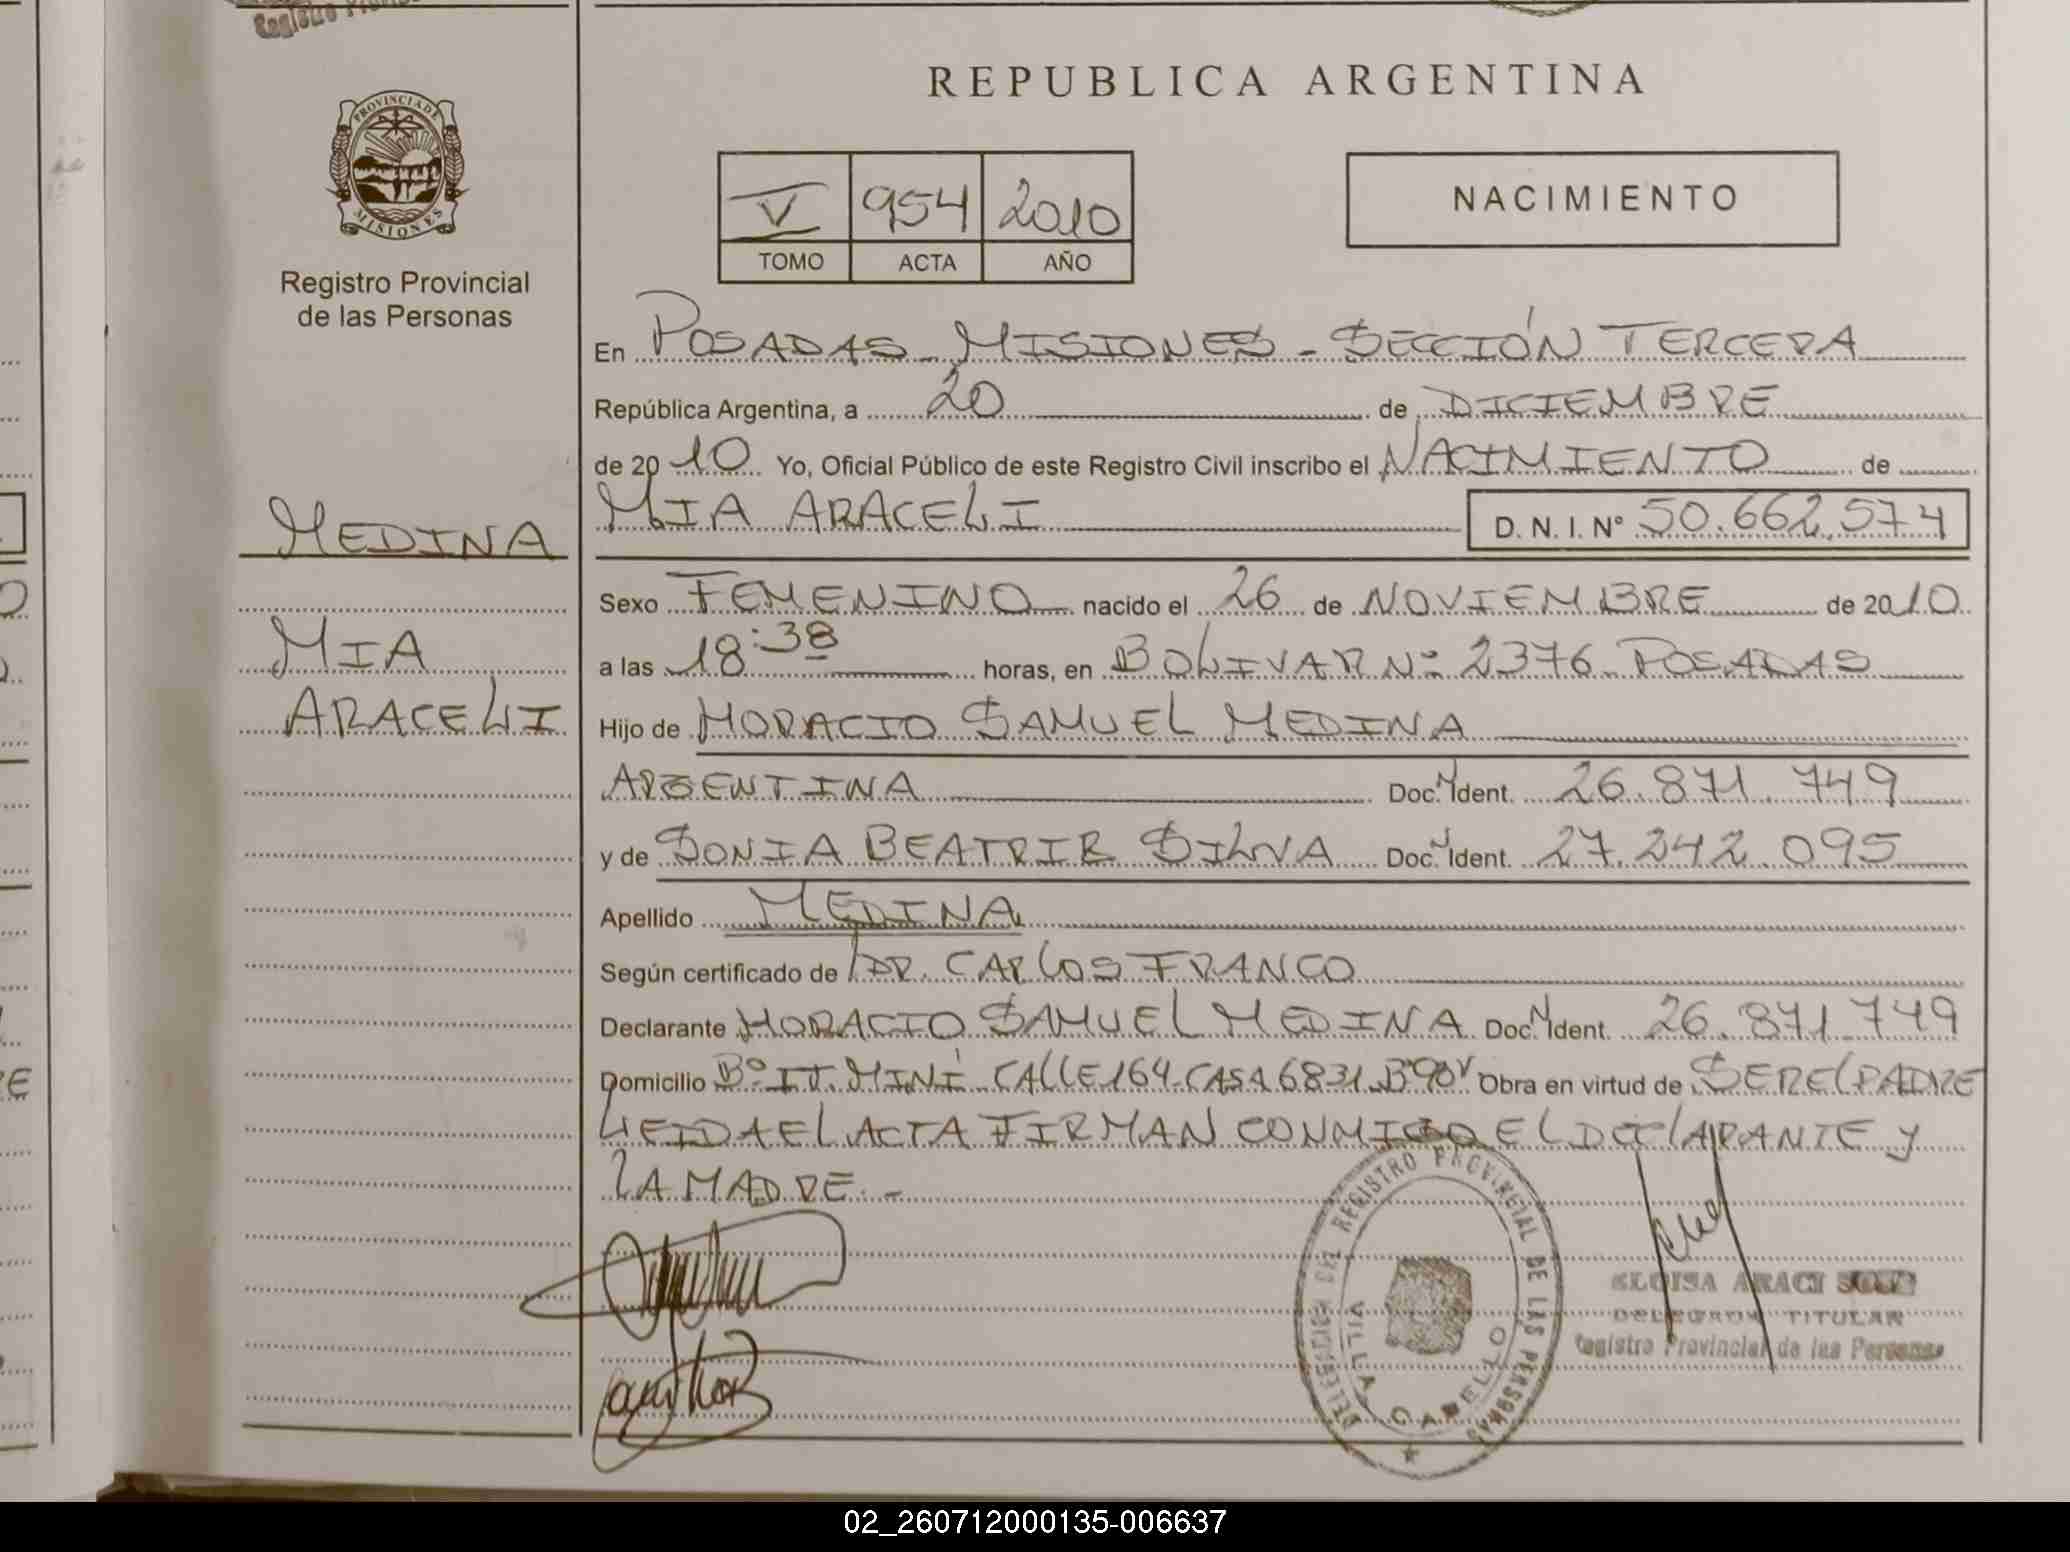 REPUBLICA ARGENTINA
PROVINCIA DE MISIONES
Registro Provincial
de las Personas
V 954 2010
TOMO ACTA AÑO
NACIMIENTO
En POSADAS - MISIONES - SECCIÓN TERCERA
República Argentina, a 20 de DICIEMBRE
de 2010 Yo, Oficial Público de este Registro Civil inscribo el NACIMIENTO de
MIA ARACELI D. N. I. Nº 50.662.574
MEDINA
MIA
ARACELI
Sexo FEMENINO nacido el 26 de NOVIEMBRE de 2010
a las 18:38 horas, en BOLIVAR Nº 2376 - POSADAS
Hijo de HORACIO SAMUEL MEDINA
ARGENTINA Doc. N Ident. 26.871.749
y de SONIA BEATRIR SILVA Doc. N Ident. 27.242.095
Apellido MEDINA
Según certificado de DR. CARLOS FRANCO
Declarante HORACIO SAMUEL MEDINA Doc. N Ident. 26.871.749
Domicilio Bº IT. MINÍ CALLE 164 - CASA 6831 Obra en virtud de SER EL PADRE
LEIDA EL ACTA FIRMAN CONMIGO EL DECLARANTE y
LA MADRE. -
DELEGACION DEL REGISTRO PROVINCIAL DE LAS PERSONAS
VILLA CABELLO
ELOISA ARACI
DELEGADA TITULAR
Registro Provincial de las Personas
02_260712000135-006637